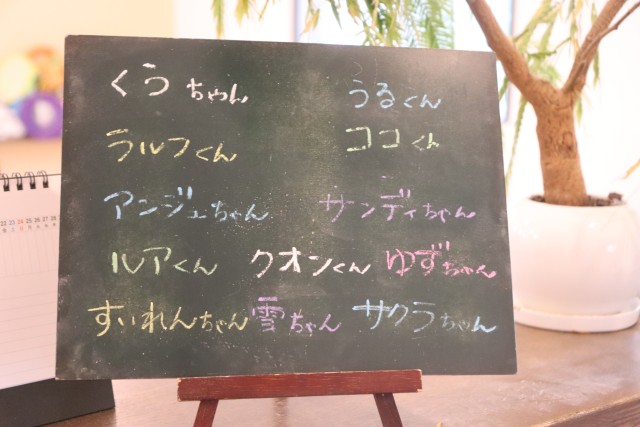 くうちゃん うるくん
ラルフくん ココくん
アンジュちゃん サンディちゃん
ルアくん クオンくん ゆずちゃん
すいれんちゃん 雪ちゃん サクラちゃん
22 23 24 25 26 27 28